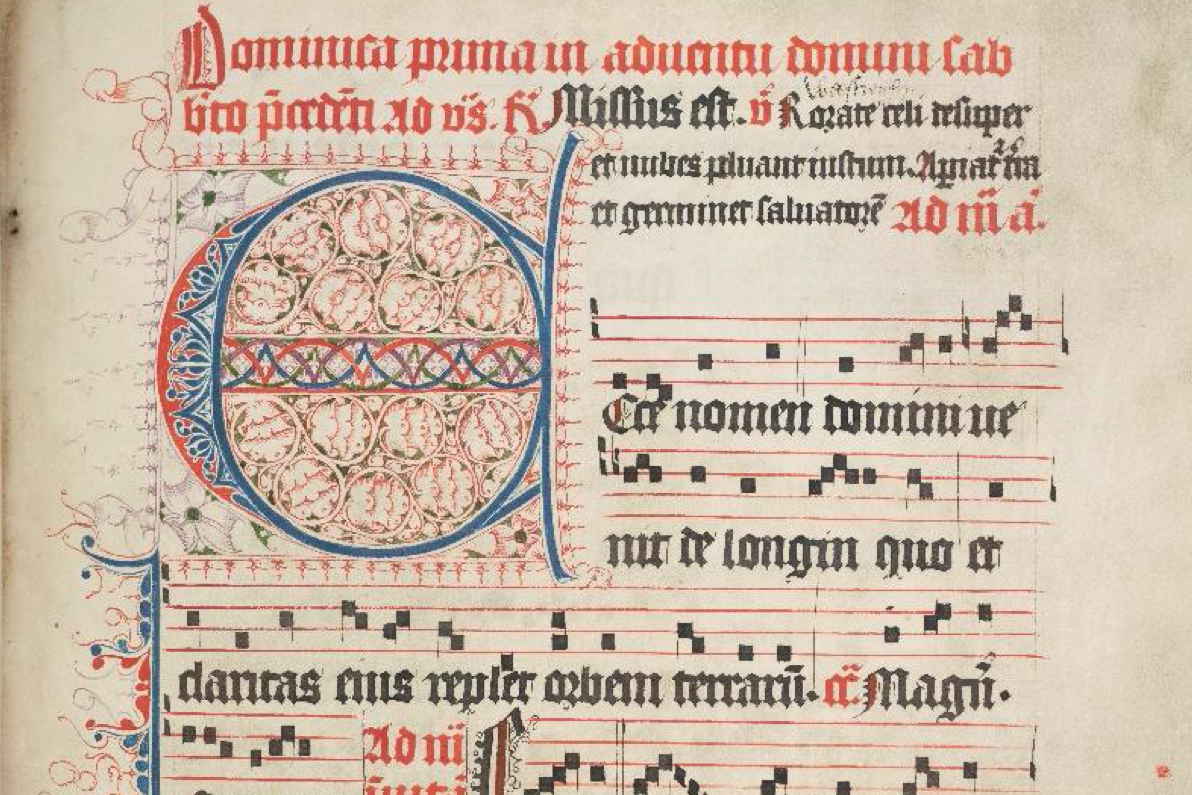 Dominica prima in aduentu domini sab
bato p̄cedēti ad vs̄. R̄ Missus est. v̄ Rorate celi desuper
et nubes pluant iustum. Apiat̄ t̄ra
et germinet saluatorē Ad m̄ a.
Ecce nomen domini ue
nit de longin quo et
claritas eius replet orbem terrarū. Magn̄.
Ad m̄